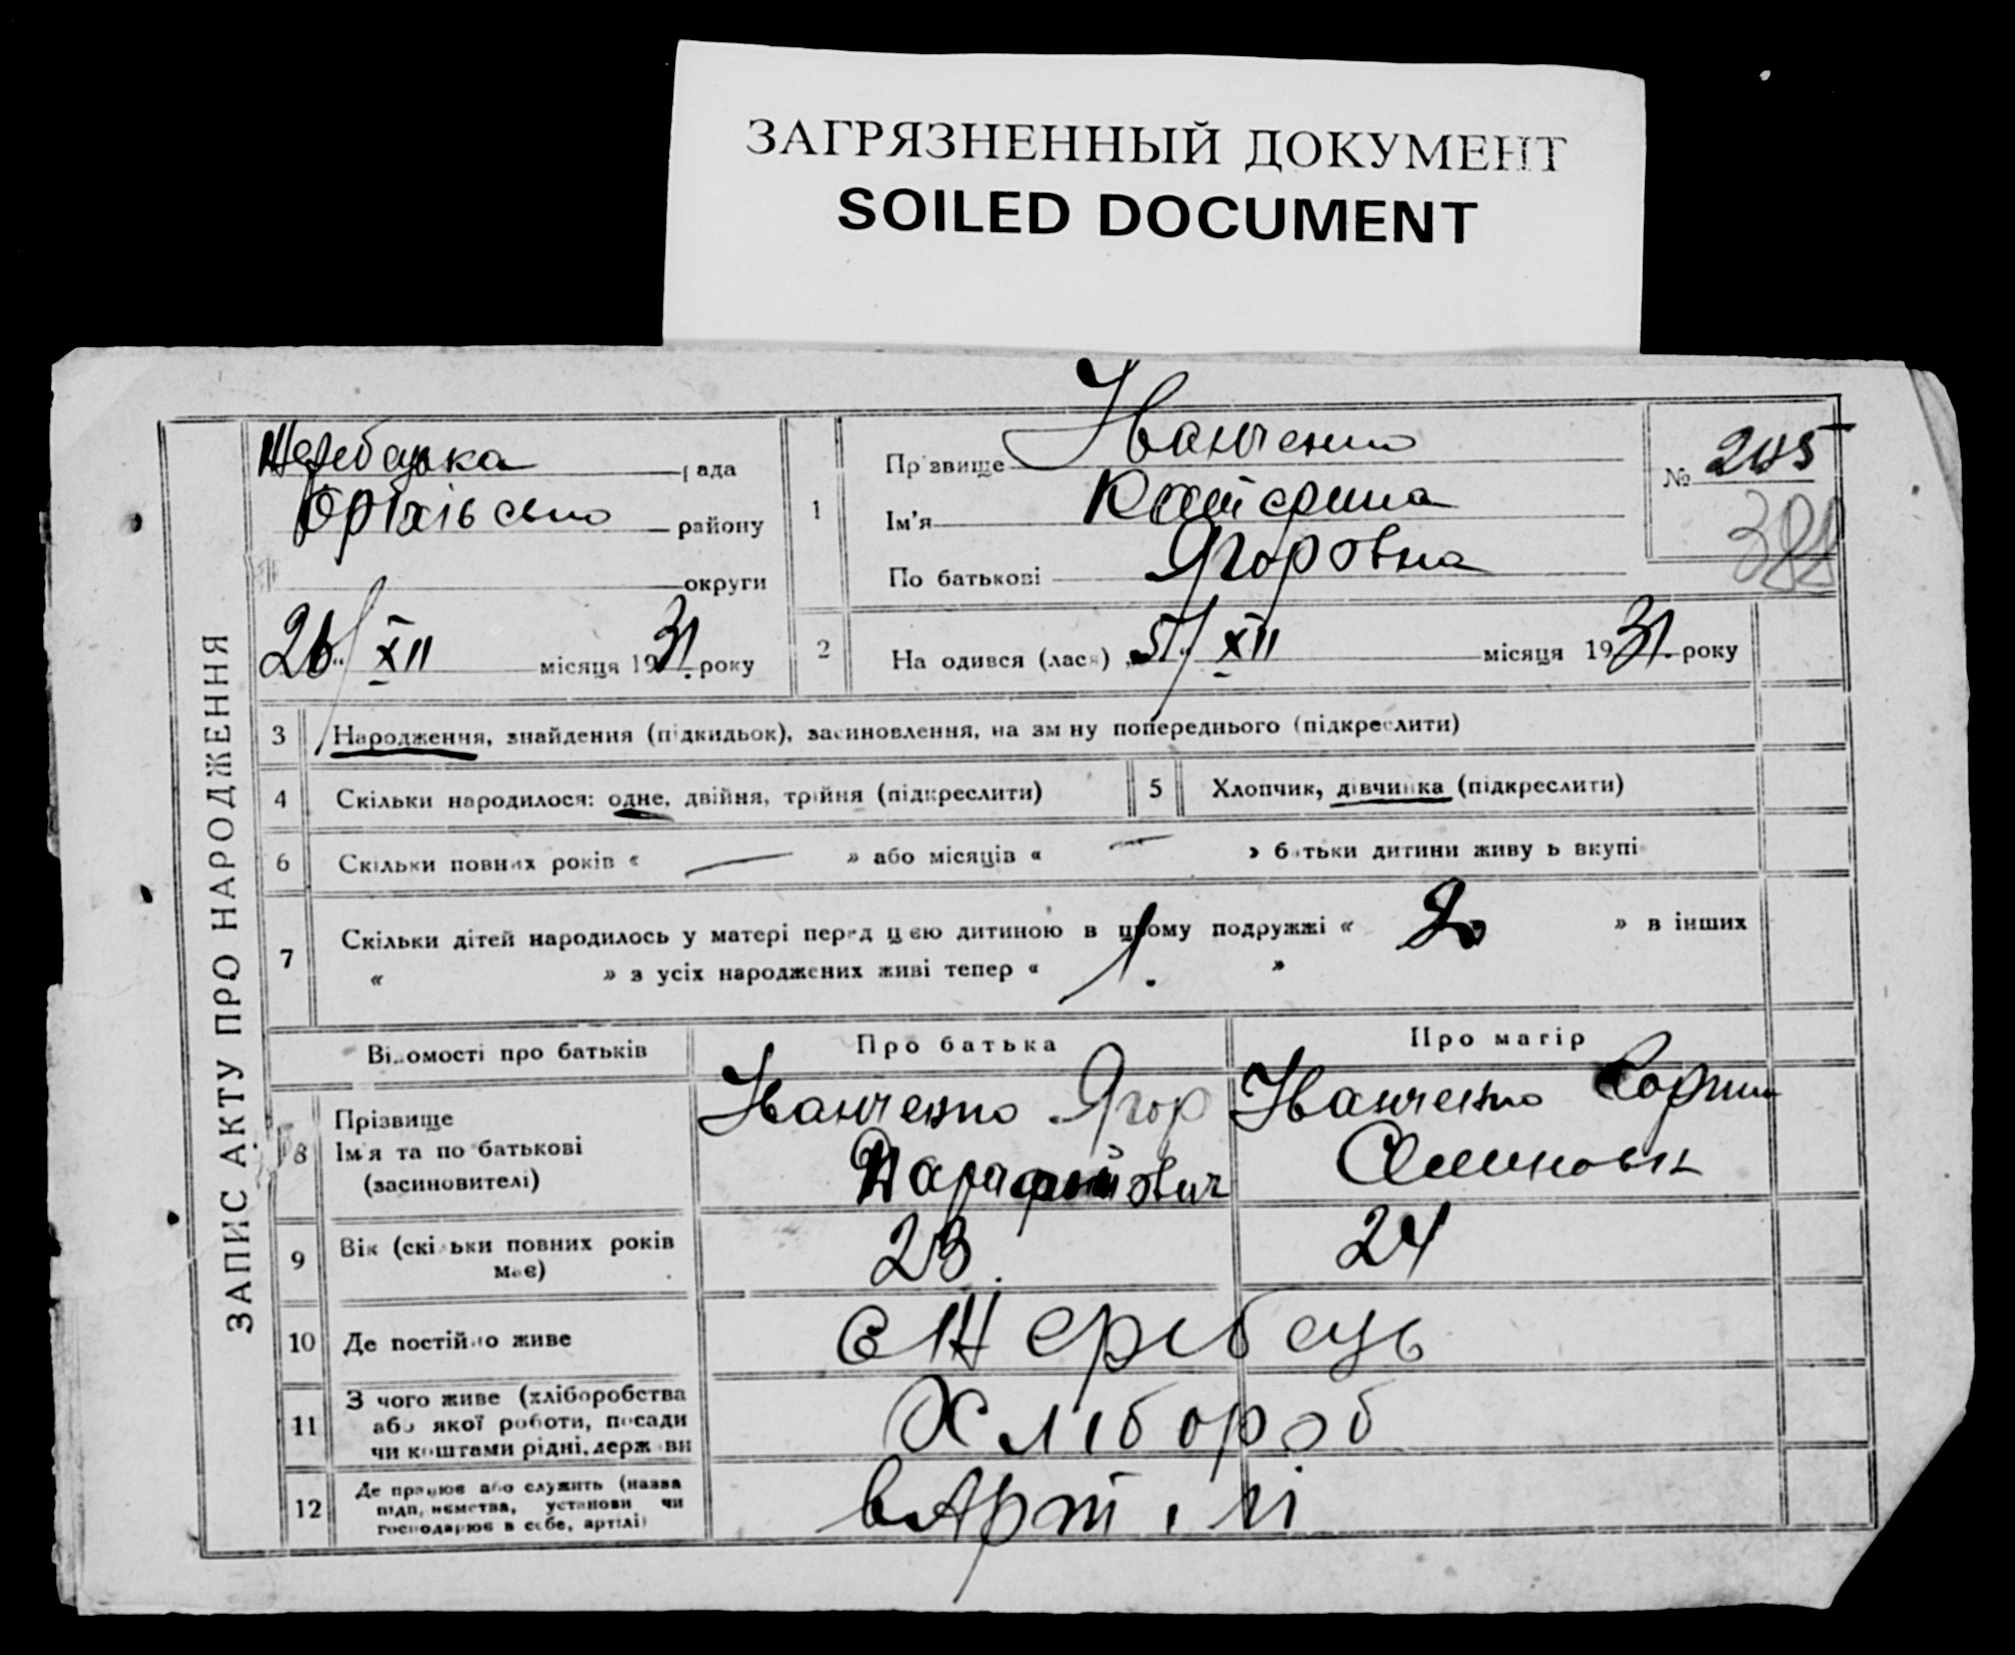 ЗАГРЯЗНЕННЫЙ ДОКУМЕНТ
SOILED DOCUMENT
ЗАПИС АКТУ ПРО НАРОДЖЕННЯ
Жеребецька рада
Оріхівсько району
округи
26/XII місяця 1931 року
1
Прізвище Иванченко
Ім'я Катерина
По батькові Ягоровна
№ 245
388
2 На одився (лася) 5/XII місяця 1931. року
3 Народження, знайдення (підкидьок), засиновлення, на зм ну попереднього (підкреслити)
4 Скільки народилося: одне, двійня, трійня (підкреслити)
5 Хлопчик, дівчинка (підкреслити)
6 Скільки повних років « — » або місяців « — » батьки дитини живу ь вкупі
7 Скільки дітей народилось у матері перед цією дитиною в цьому подружжі « 2 » в інших
« » з усіх народжених живі тепер « 1. »
Відомості про батьків
Про батька
Про матір
8 Прізвище
Ім'я та по батькові
(засиновителі)
Иванченко Ягор
Иванченко
9 Вік (скільки повних років має)
23.
24
10 Де постійно живе
с Жеребець
11 З чого живе (хліборобства
або якої роботи, посади
чи коштами рідні, держави
Хлібороб
12 Де працює або служить (назва
підп, ємства, установи чи
господарює в себе, артілі)
в Артілі